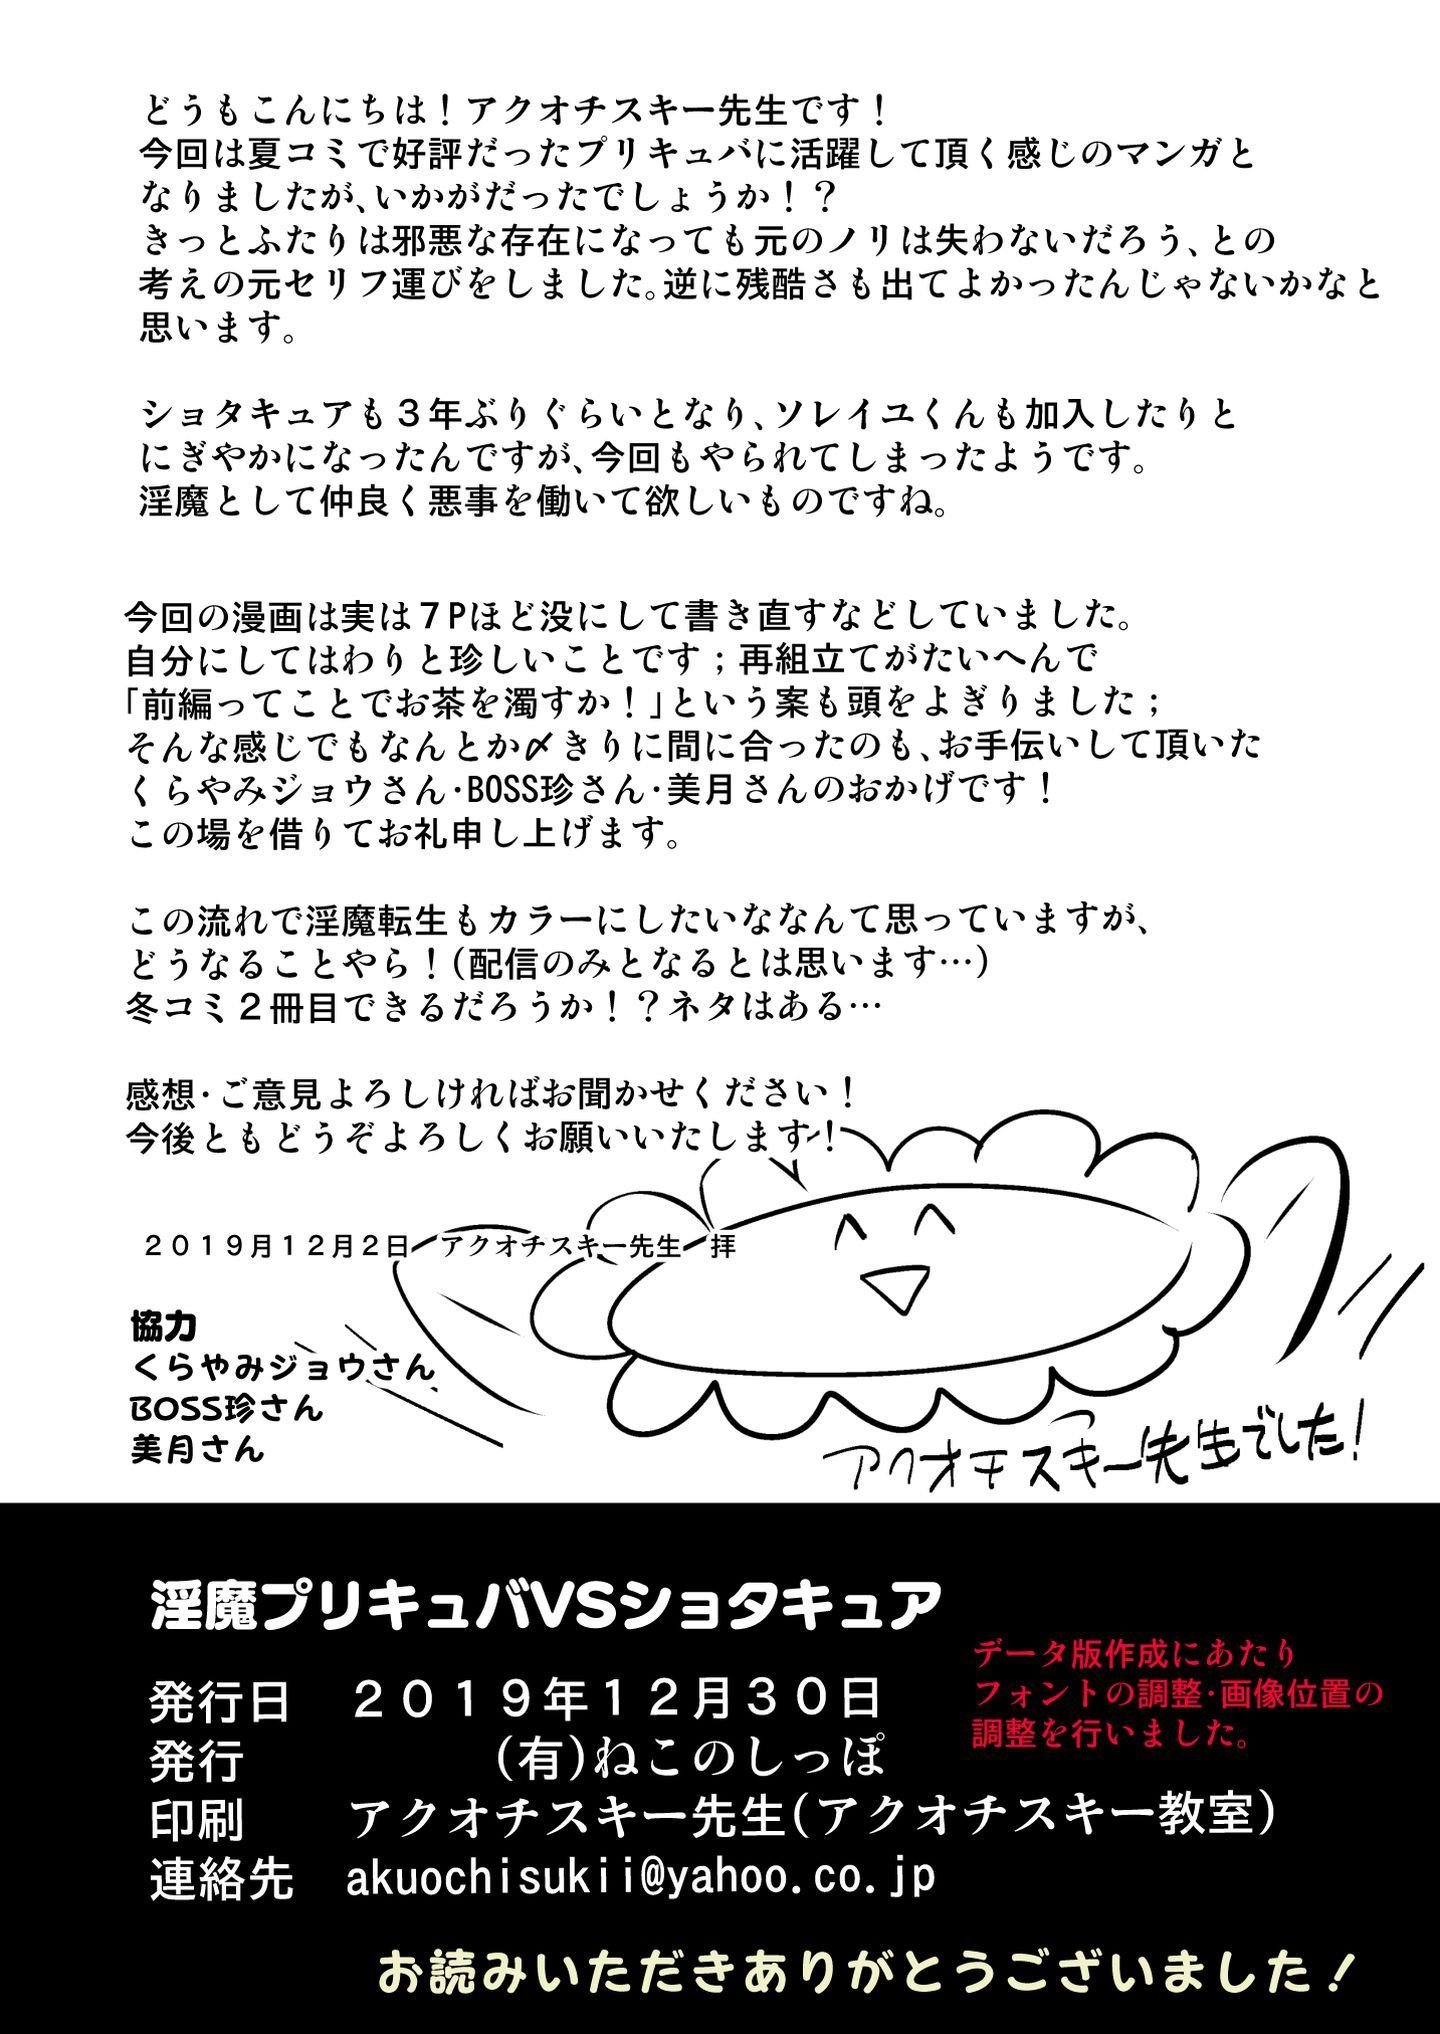 どうもこんにちは！アクオチスキー先生です！
今回は夏コミで好評だったプリキュバに活躍して頂く感じのマンガと
なりましたが、いかがだったでしょうか！？
きっとふたりは邪悪な存在になっても元のノリは失わないだろう、との
考えの元セリフ運びをしました。逆に残酷さも出てよかったんじゃないかなと
思います。
ショタキュアも３年ぶりぐらいとなり、ソレイユくんも加入したりと
にぎやかになったんですが、今回もやられてしまったようです。
淫魔として仲良く悪事を働いて欲しいものですね。
今回の漫画は実は７Pほど没にして書き直すなどしていました。
自分にしてはわりと珍しいことです；再組立てがたいへんで
「前編ってことでお茶を濁すか！」という案も頭をよぎりました；
そんな感じでもなんとか〆きりに間に合ったのも、お手伝いして頂いた
くらやみジョウさん・BOSS珍さん・美月さんのおかげです！
この場を借りてお礼申し上げます。
この流れで淫魔転生もカラーにしたいななんて思っていますが、
どうなることやら！（配信のみとなるとは思います…）
冬コミ２冊目できるだろうか！？ネタはある…
感想・ご意見よろしければお聞かせください！
今後ともどうぞよろしくお願いいたします！
２０１９月１２月２日　アクオチスキー先生　拝
協力
くらやみジョウさん
BOSS珍さん
美月さん
アクオチスキーっ先生でした！
淫魔プリキュバVSショタキュア
データ版作成にあたり
フォントの調整・画像位置の
調整を行いました。
発行日　２０１９年１２月３０日
発行　（有）ねこのしっぽ
印刷　アクオチスキー先生（アクオチスキー教室）
連絡先　akuochisukii@yahoo.co.jp
お読みいただきありがとうございました！